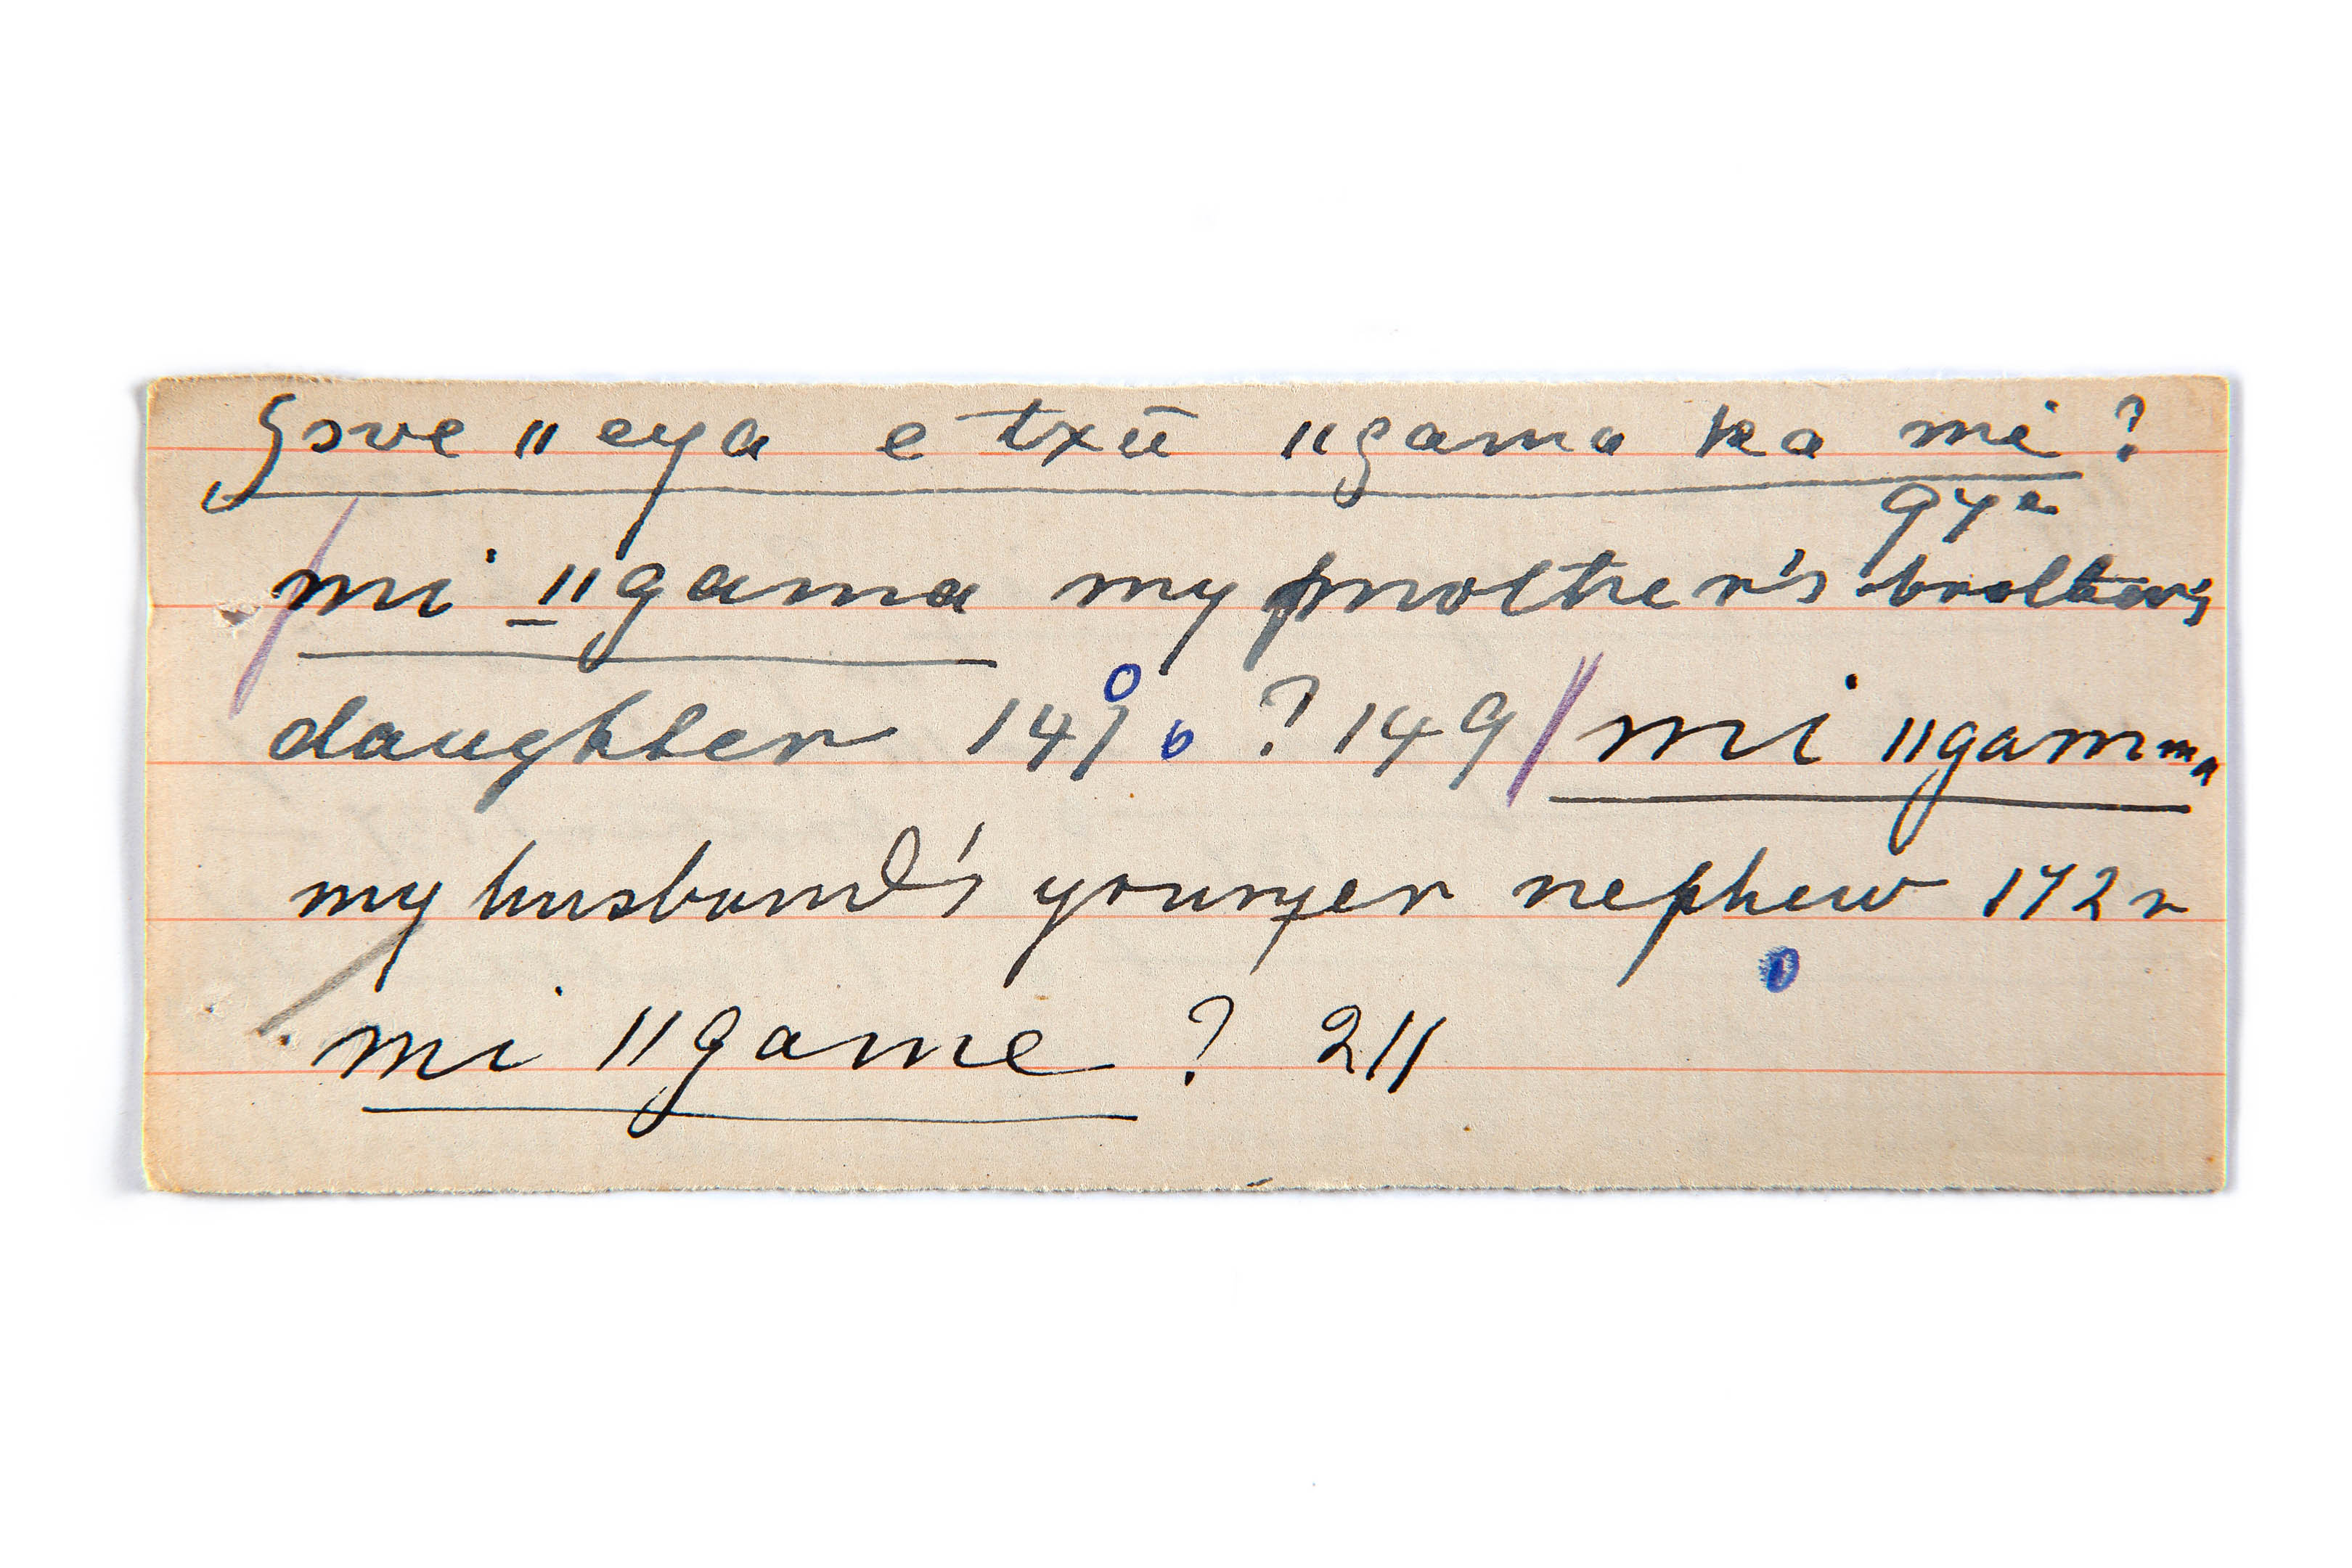 gove ǁeya e txū ǁgama ka mi ?
97a
mi ǁgama my mother's brother's
daughter 149 b ? 149 / mi ǁgamma
my husband's younger nephew 172 r
mi ǁgame ? 211